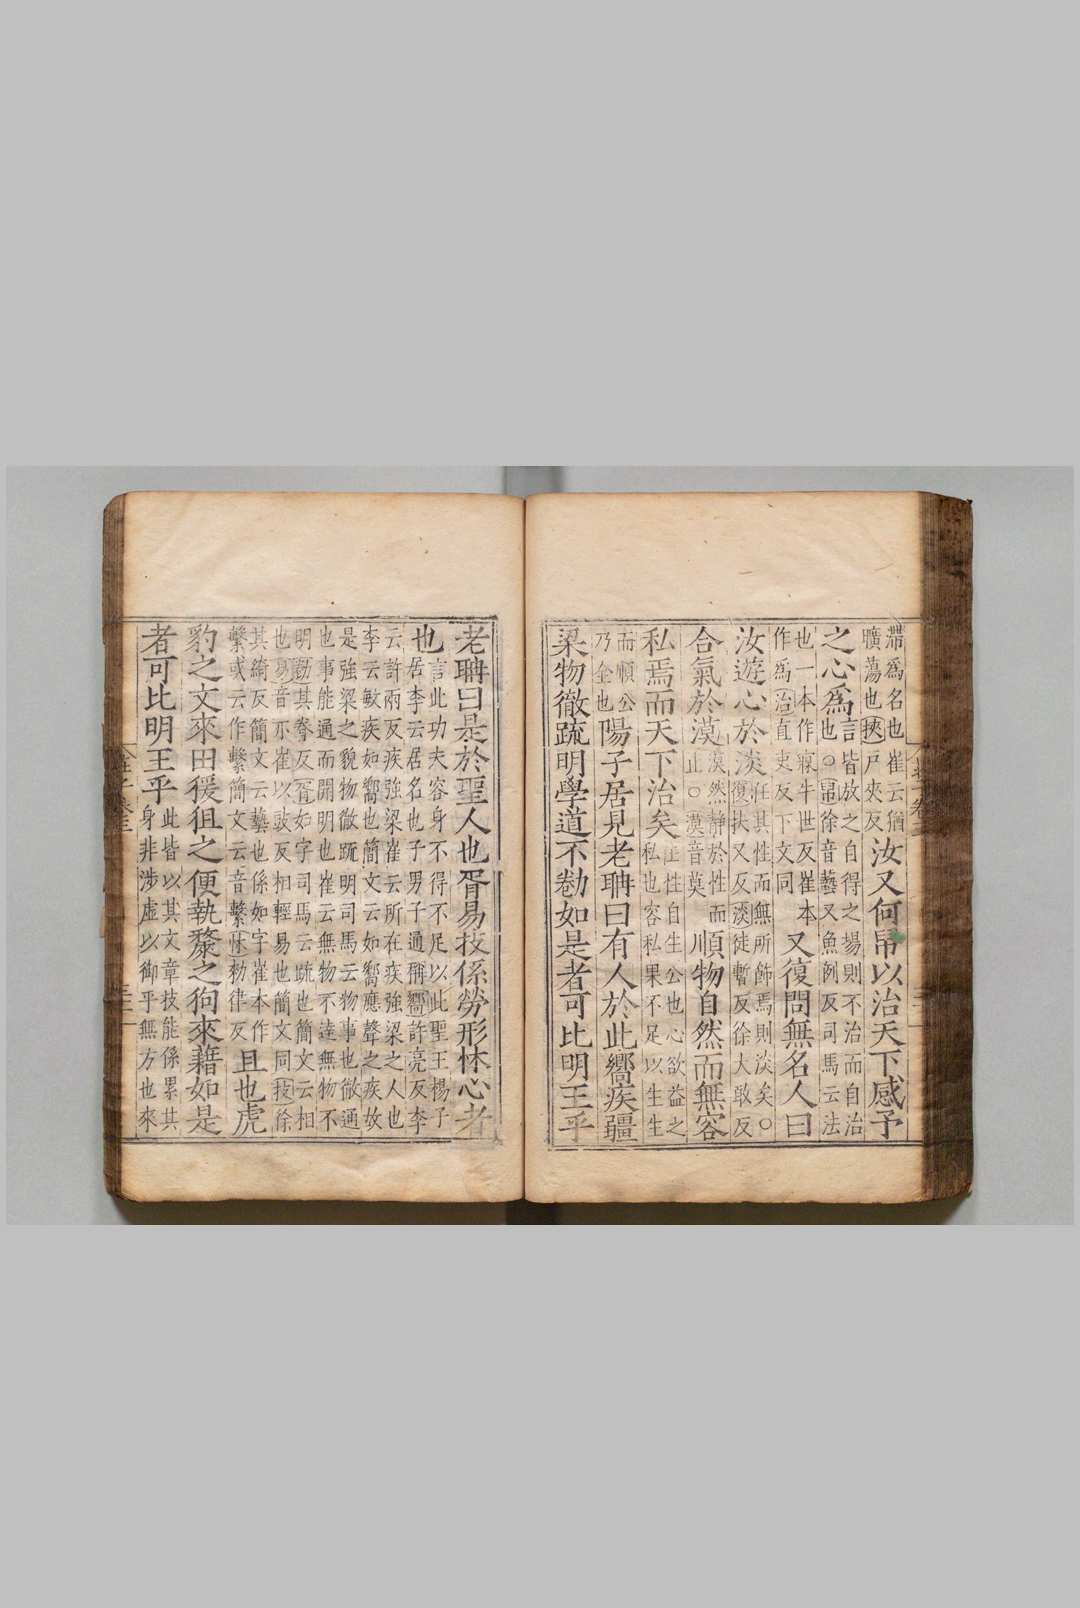 滯為名也崔云猶
曠蕩也㧙尸夾反
汝又何帠以治天下感予
之心為
言皆放之自得之場則不治而自治
也○帠徐音藝又魚例反司馬云法
也一本作寱牛世反崔本
作為治直吏反下文同
又復問無名人曰
汝遊心於淡
任其性而無所飾焉則淡矣○
復扶又反淡徒暫反徐大敢反
合氣於漠
漠然靜於性而
止○漠音莫
順物自然而無容
私焉而天下治矣
任性自生公也心欲益之
私也容私果不足以生生
而順公
乃全也
陽子居見老聃曰有人於此嚮疾彊
梁物徹疏明學道不勌如是者可比明王乎
老聃曰是於聖人也胥易技係勞形怵心者
也
言此功夫容身不得不足以此聖王楊子
居李云居名也子男子通稱嚮許亮反李
云許兩反疾強梁崔云所在疾強梁之人也
李云敏疾如嚮也簡文云如嚮應聲之疾故
是強梁之貌物徹疏明司馬云物事也徹通
也事能通而開明也崔云無物不達無物不
明勌其眷反胥如字司馬云疏也簡文云相
也易音亦崔以豉反相輕易也簡文同技徐
其綺反簡文云藝也係如字崔本作
繫或云作繫簡文云音繫怵勑律反
且也虎
豹之文來田猨狙之便執斄之狗來藉如是
者可比明王乎
此皆以其文章技能係累其
身非涉虛以御乎無方也來